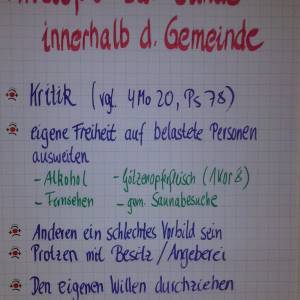 innerhalb d. Gemeinde
Kritik (vgl. 4Mo 20, Ps 78)
eigene Freiheit auf belastete Personen
ausweiten
- Alkohol - Götzenopferfleisch (1Kor 8)
- Fernsehen - gem. Saunabesuche
Anderen ein schlechtes Vorbild sein
Protzen mit Besitz / Angeberei
Den eigenen Willen durchziehen